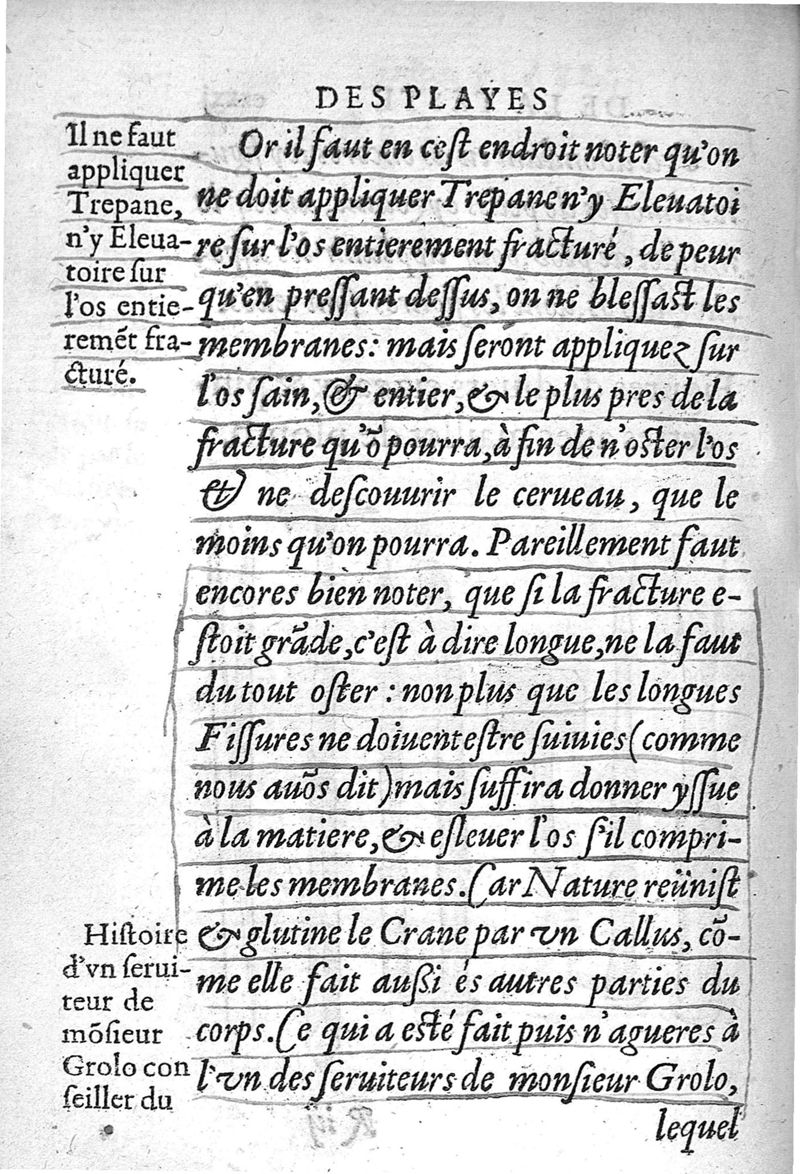 DES PLAYES
Il ne faut
appliquer
Trepane,
n'y Eleua-
toire ſur
l'os entie-
remẽt fra-
cturé.
Or il faut en ceſt endroit noter qu'on
ne doit appliquer Trepane n'y Eleuatoi
re ſur l'os entierement fracturé, de peur
qu'en preſſant deſſus, on ne bleſſaſt les
membranes: mais ſeront appliquez ſur
l'os ſain, & entier, & le plus pres de la
fracture qu'õ pourra, à fin de n'oſter l'os
& ne deſcouurir le cerueau, que le
moins qu'on pourra. Pareillement faut
encores bien noter, que ſi la fracture e-
ſtoit grãde, c'eſt à dire longue, ne la faut
du tout oſter : non plus que les longues
Fiſſures ne doiuent eſtre ſuiuies (comme
nous auõs dit) mais ſuffira donner yſſue
à la matiere, & eſleuer l'os ſ'il compri-
me les membranes. Car Nature reüniſt
& glutine le Crane par vn Callus, cõ-
me elle fait außi és autres parties du
corps. Ce qui a eſté fait puis n'agueres à
l'vn des ſeruiteurs de monſieur Grolo,
Hiſtoire
d'vn ſerui-
teur de
mõſieur
Grolo con
ſeiller du
lequel